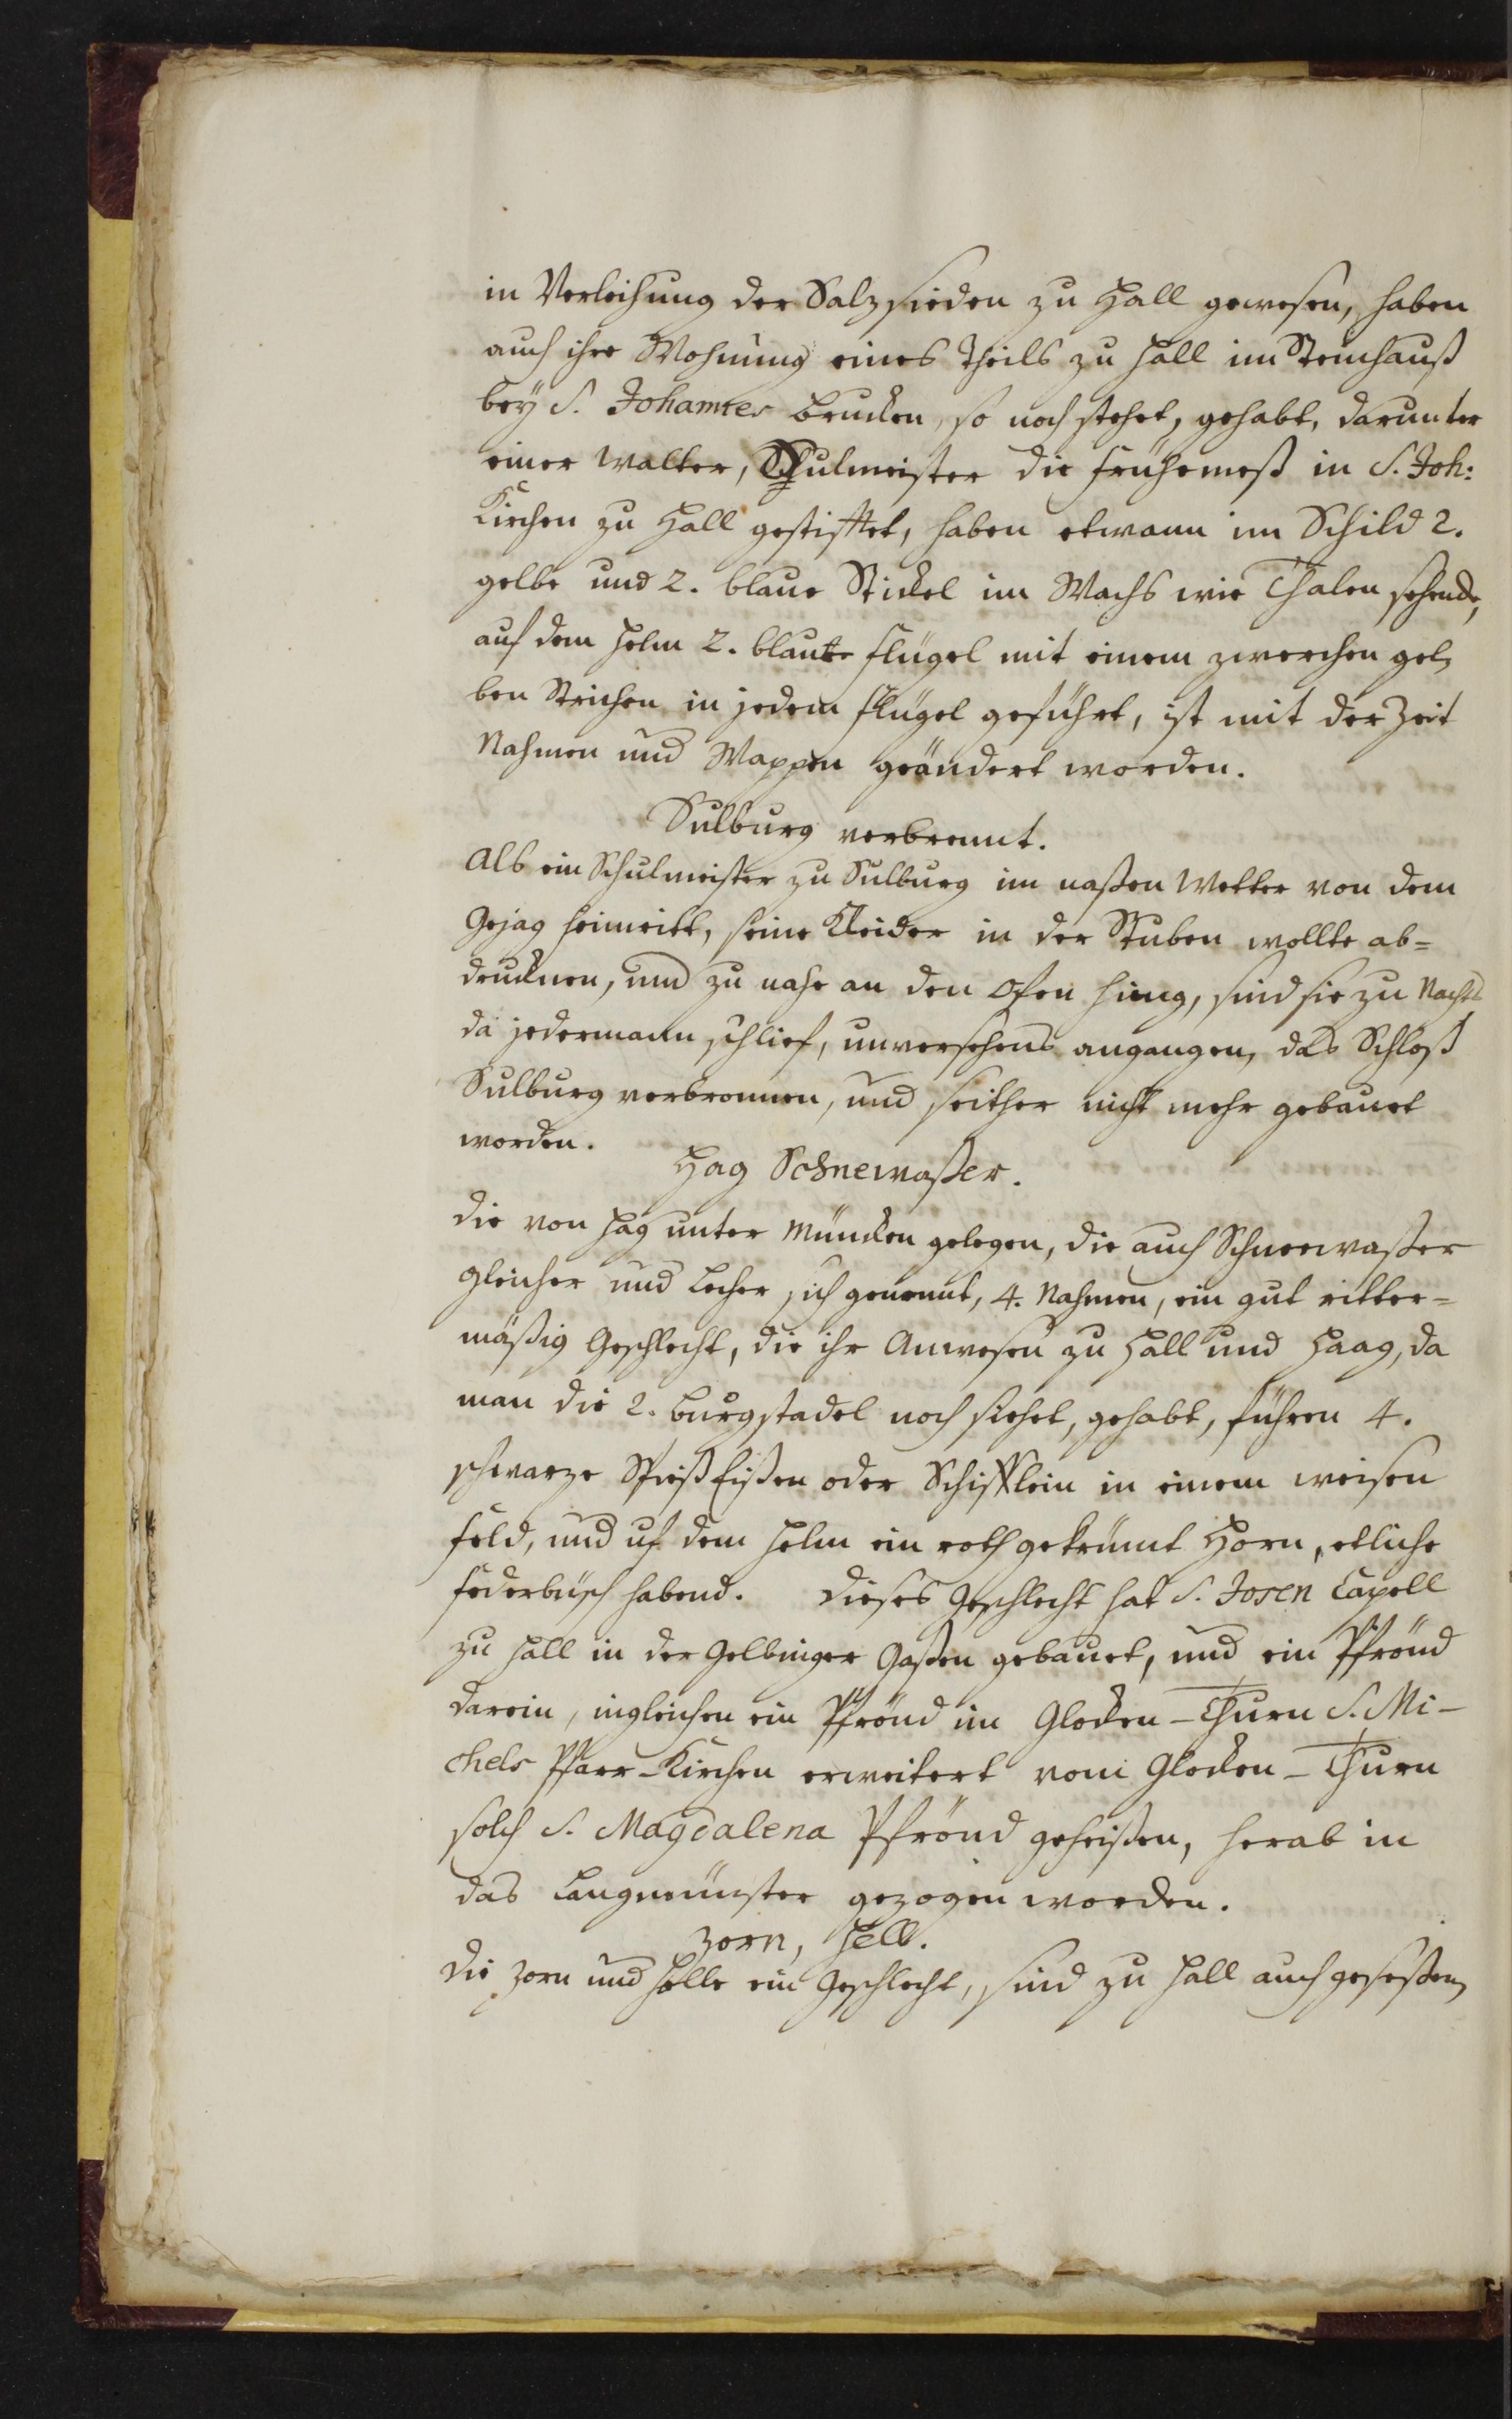 in Verleihung der Salzsieden zu Hall gewesen, haben
auch ihre Wohnung eines Theils zu Hall im Steinhauß
bey S. Johannes Brucken, so noch stehet, gehabt, darunter
einer Walter, Schulmeister die frühemeß in S. Joh:
Kirchen zu Hall gestifftet, haben etwann im Schild 2.
gelbe und 2. blaue Stickel im Wachs wie Thalen sehende,
auf dem Helm 2. blaue flügel mit einem zwerchen gel,
ben Strichen in jedem flügel geführt, ist mit der Zeit
Nahmen und Wappen geändert worden.
Sulburg verbrennt.
Als ein Schulmeister zu Sulburg im naßen Wetter von dem
Gejag heimritt, seine Kleider in der Stuben wollte ab=
drucknen, und zu nahe an den Ofen hieng, sind sie zu Nachts
da jedermann schlief, unversehens angangen, das Schloß
Sulburg verbronnen, und seither nicht mehr gebauet
worden.
Hag Schnewaßer.
die von Hag unter Müncken gelegen, die auch Schneewaßer
Gleicher und Lecher sich genennt, 4. Nahmen, ein gut ritter=
mäßig Geschlecht, die ihr Anwesen zu Hall und Haag, da
man die 2. Burgstadel noch siehet, gehabt, führen 4.
schwarze Spieß Eißen oder Schifflein in einem weisen
feld, und uf dem Helm ein roth gekrümt Horn, etliche
federbüsch habend. dieses Geschlecht hat S. Josen Capell
zu Hall in der Gelbinger Gaßen gebauet, und ein Pfrönd
darein, ingleichen ein Pfrönd im Glocken-Thurn S. Mi-
chels Pfarr-Kirchen erweitert vom Glocken-Thurn
solch S. Magdalena Pfrönd geheißen, herab in
das Langmünster gezogen worden.
Zorn, Hell.
die Zorn und Helle ein Geschlecht, sind zu Hall auch geseßen,